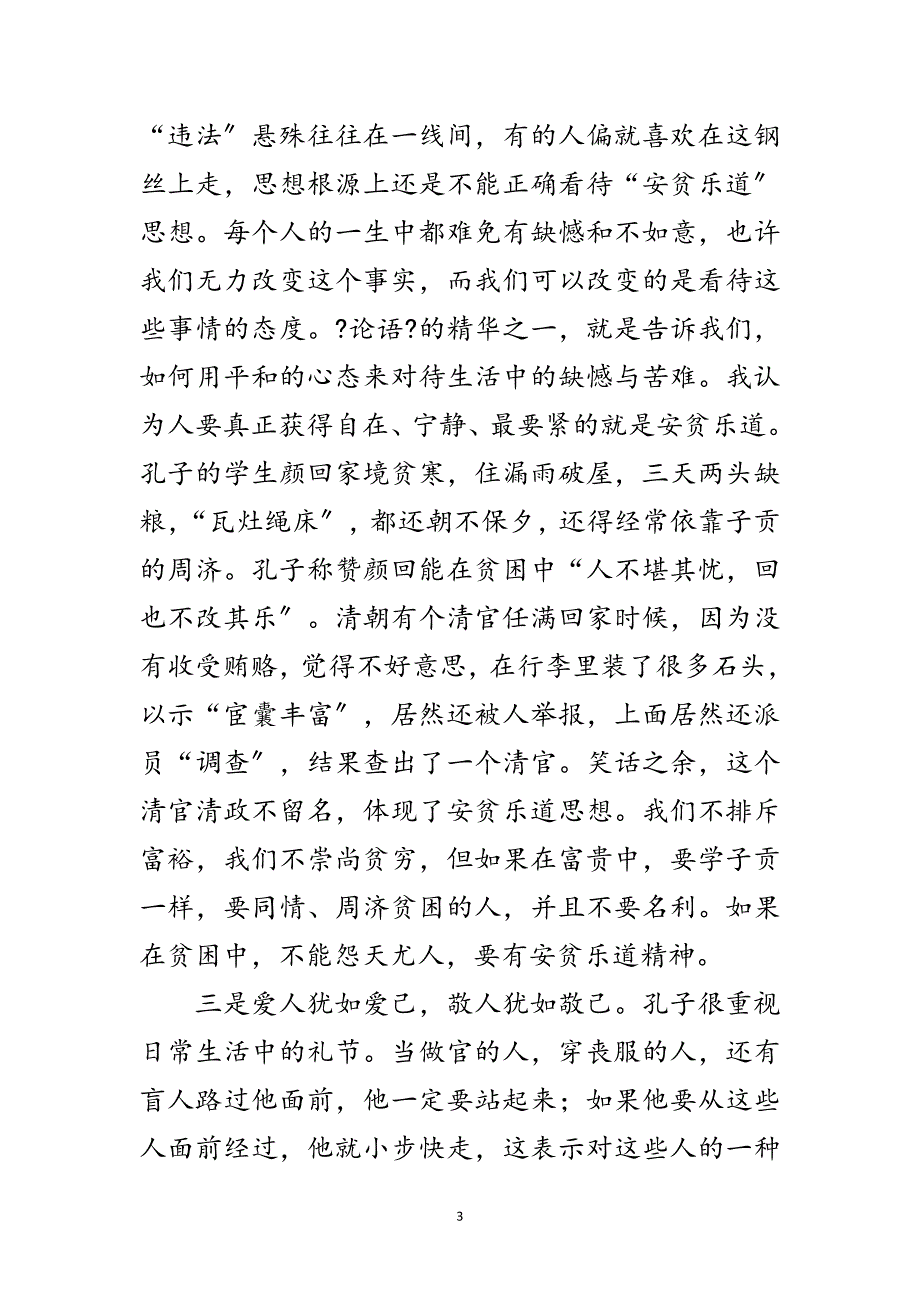 “违法〞悬殊往往在一线间，有的人偏就喜欢在这钢
丝上走，思想根源上还是不能正确看待“安贫乐道〞
思想。每个人的一生中都难免有缺憾和不如意，也许
我们无力改变这个事实，而我们可以改变的是看待这
些事情的态度。?论语?的精华之一，就是告诉我们，
如何用平和的心态来对待生活中的缺憾与苦难。我认
为人要真正获得自在、宁静、最要紧的就是安贫乐道。
孔子的学生颜回家境贫寒，住漏雨破屋，三天两头缺
粮，“瓦灶绳床〞，都还朝不保夕，还得经常依靠子贡
的周济。孔子称赞颜回能在贫困中“人不堪其忧，回
也不改其乐〞。清朝有个清官任满回家时候，因为没
有收受贿赂，觉得不好意思，在行李里装了很多石头，
以示“宦囊丰富〞，居然还被人举报，上面居然还派
员“调查〞，结果查出了一个清官。笑话之余，这个
清官清政不留名，体现了安贫乐道思想。我们不排斥
富裕，我们不崇尚贫穷，但如果在富贵中，要学子贡
一样，要同情、周济贫困的人，并且不要名利。如果
在贫困中，不能怨天尤人，要有安贫乐道精神。
三是爱人犹如爱己，敬人犹如敬己。孔子很重视
日常生活中的礼节。当做官的人，穿丧服的人，还有
盲人路过他面前，他一定要站起来；如果他要从这些
人面前经过，他就小步快走，这表示对这些人的一种
3